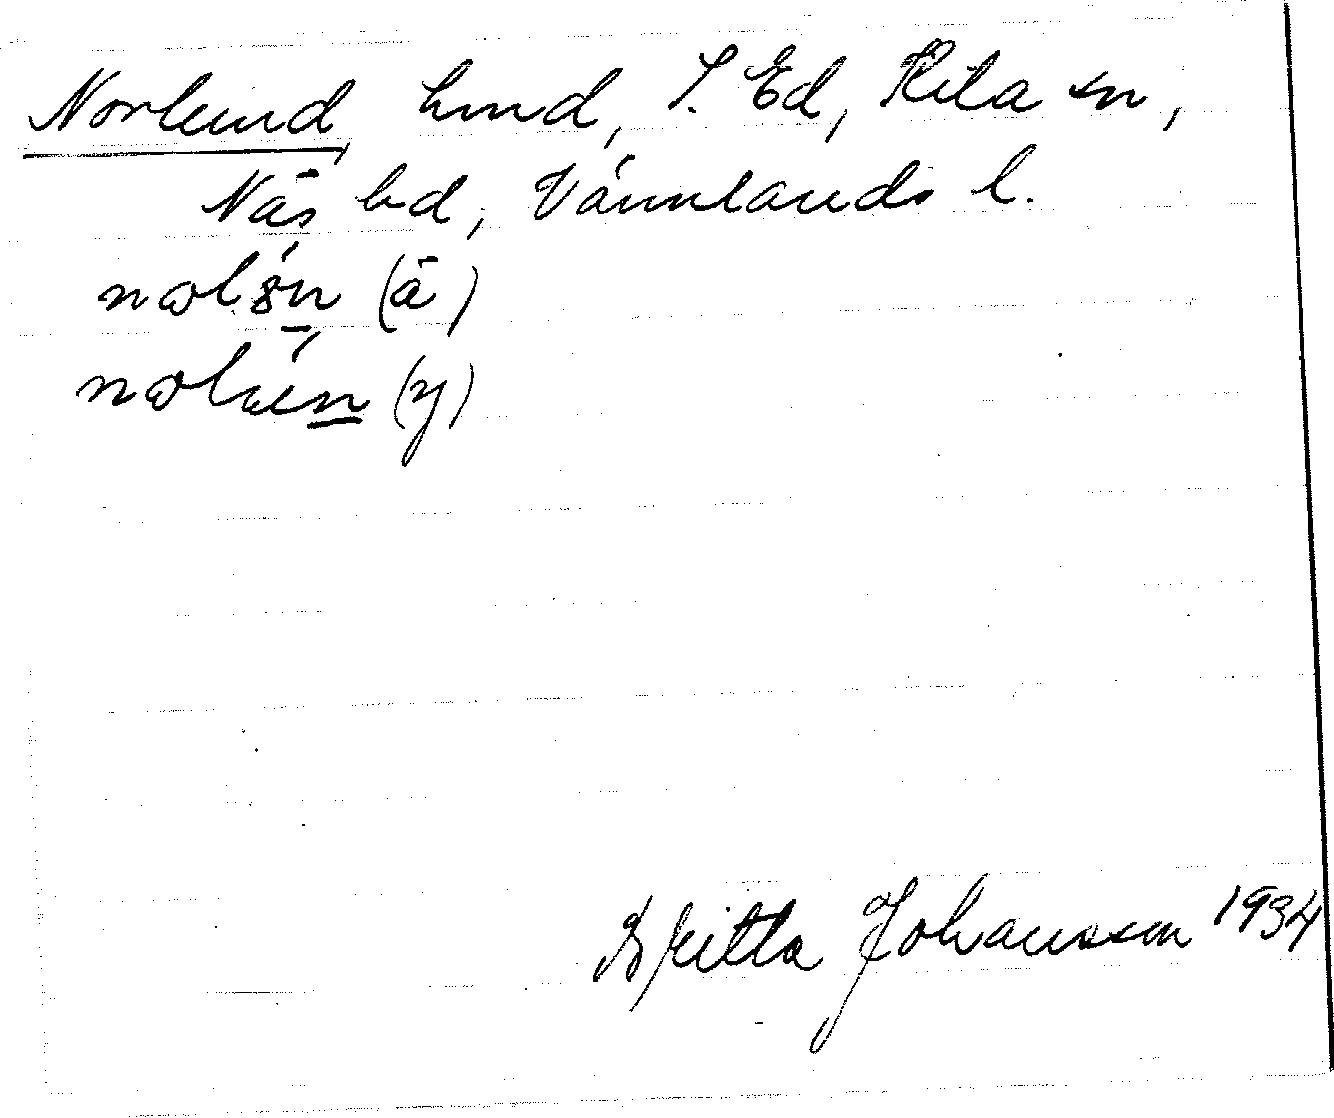 Norlund, hmd, S. Ed, Kila sn,
Näs hd, Värmlands l.
(ä)
(y)
Britta Johansson 1934